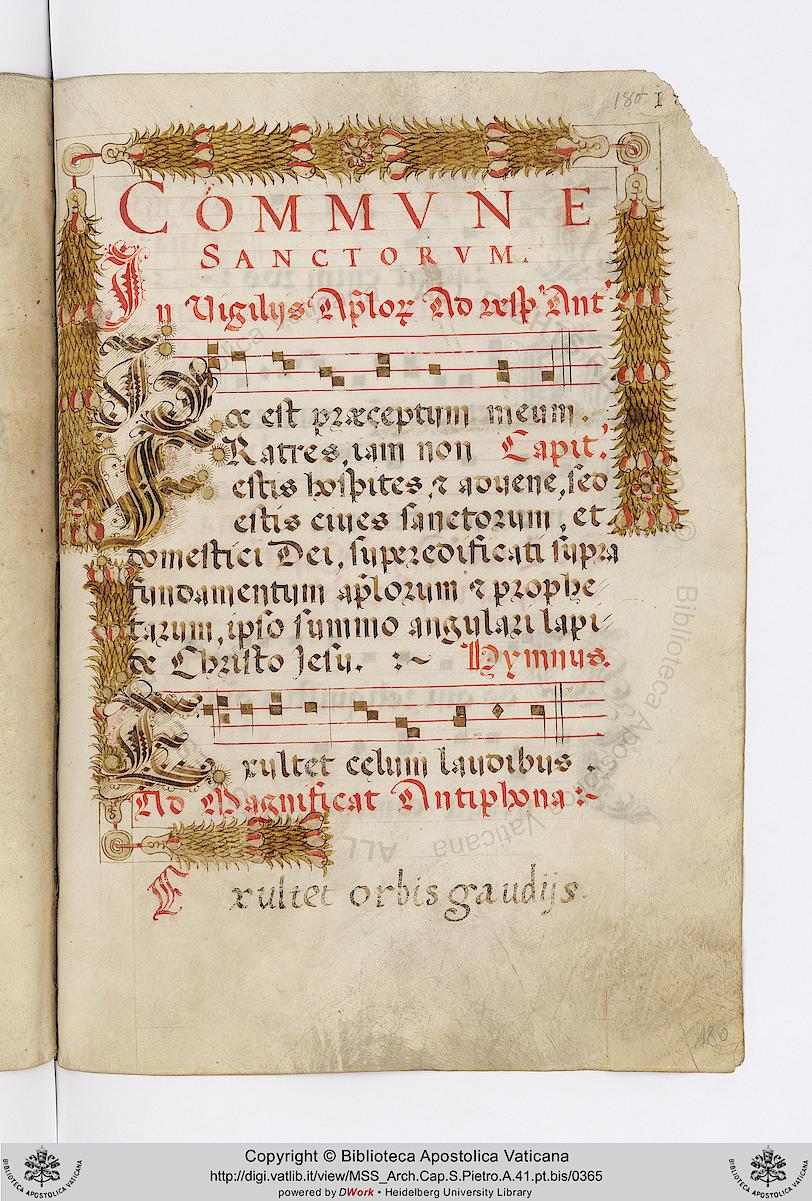 180. I
COMMVNE
SANCTORVM.
In Vigilijs Aplorꝝ Ad vesp' Ant'
Hoc est præceptum meum.
Fratres, iam non Capit'.
estis hospites, ⁊ aduene, sed
estis ciues sanctorum, et
domestici Dei, superedificati supra
fundamentum aplorum ⁊ prophe
tarum, ipso summo angulari lapi
de Christo Jesu. :~ Hymnus.
Exultet celum laudibus.
Ad Magnificat Antiphona:~
Exultet orbis gaudijs.
180
Copyright © Biblioteca Apostolica Vaticana
http://digi.vatlib.it/view/MSS_Arch.Cap.S.Pietro.A.41.pt.bis/0365
powered by DWork • Heidelberg University Library
BIBLIOTECA APOSTOLICA VATICANA
BIBLIOTECA APOSTOLICA VATICANA